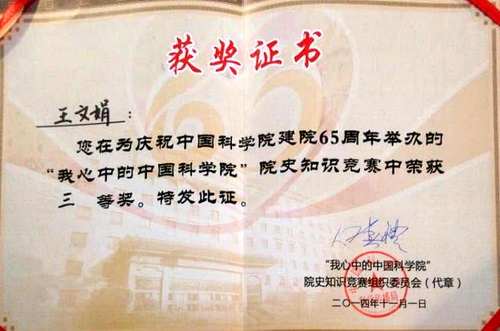 获奖证书
王文娟：
您在为庆祝中国科学院建院65周年举办的
“我心中的中国科学院”院史知识竞赛中荣获
三 等奖。特发此证。
“我心中的中国科学院”
院史知识竞赛组织委员会（代章）
二〇一四年十一月一日